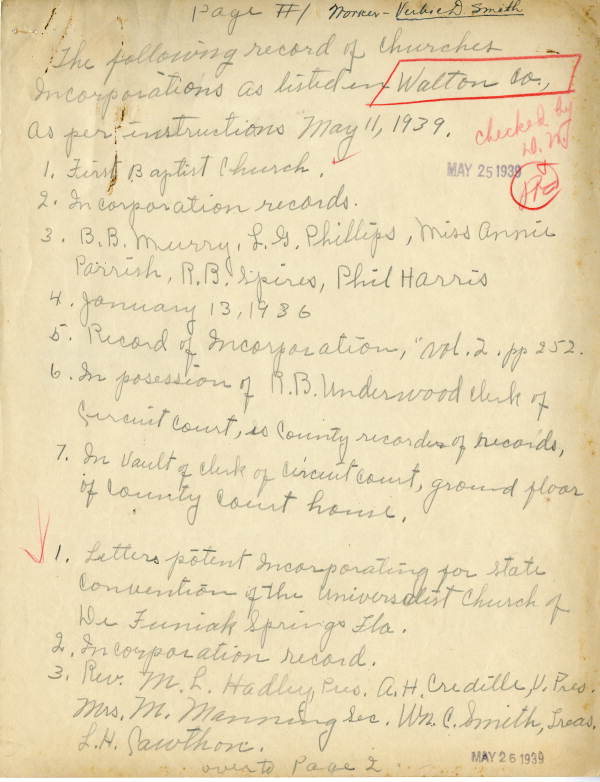 Page #1 Worker - Verbie D. Smith
The following record of Churches
Incorporations as listed in Walton Co.,
As per instructions May 11, 1939. checked by
D. M. J.
1. First Baptist Church. MAY 25 1939
2. Incorporation records.
3. B.B. Murry, L.G. Phillips, Miss Annie
Parrish, R.B. Spires, Phil Harris
4. January 13, 1936
5. Record of Incorporation, "Vol. 2. pp 252.
6. In posession of R.B. Underwood Clerk of
Circuit Court, is County recorder of records,
7. In Vault of Clerk of Circuit Court, ground floor
of County Court house.
1. Letters potent Incorporating for State
Convention of the Universalist Church of
De Funiak Springs Fla.
2. Incorporation record.
3. Rev. M. L. Hadley Pres. A.H. Credille, V. Pres.
Mrs. M. Manning Sec. Wm. C. Smith, Treas.
L.H. Cawthon.
over to Page 2 MAY 26 1939